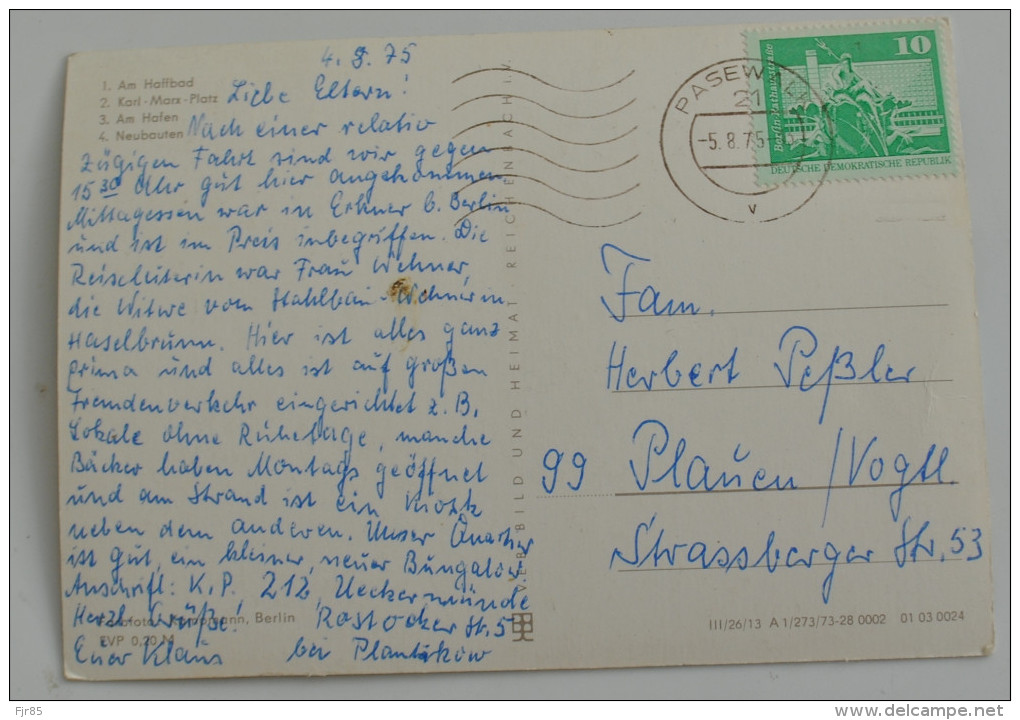 4. 8. 75
1. Am Haffbad
2. Karl-Marx-Platz
3. Am Hafen
4. Neubauten
Liebe Eltern!
Nach einer relativ
zügigen Fahrt sind wir gegen
15 30 Uhr gut hier angekommen.
Mittagessen war in Erkner b. Berlin
und ist im Preis inbegriffen. Die
Reiseleiterin war Frau Wehner,
die Witwe vom Stahlbau-Wehner in
Haselbrunn. Hier ist alles ganz
prima und alles ist auf großen
Fremdenverkehr eingerichtet z. B.
Lokale ohne Ruhetage, manche
Bäcker haben Montags geöffnet
und am Strand ist ein Kiosk
neben dem anderen. Unser Quartier
ist gut, ein kleiner, neuer Bungalow
Anschrift: K. P. 212, Ueckermünde
Herzl. Grüße! Rostocker Str. 5
Euer Klaus bei Plantikow
Berlin
EVP 0,20 M
VEB BILD UND HEIMAT · REICHENBACH I. V.
PASEW
21
-5. 8. 75
v
10
Berlin-Rathausstraße
DEUTSCHE DEMOKRATISCHE REPUBLIK
Fam.
Herbert Peßler
99 Plauen/Vogtl.
Strassberger Str. 53
III/26/13 A 1/273/73-28 0002 01 03 0024
Fjr85
delcampe.net